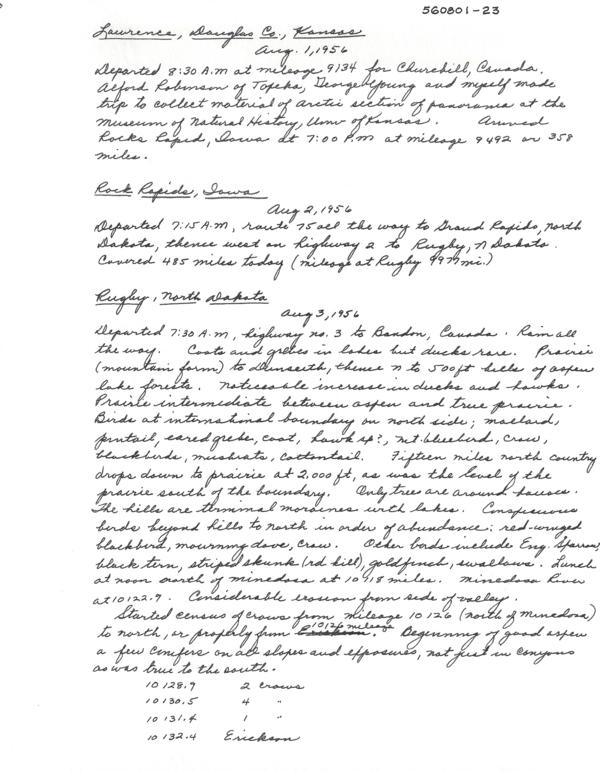 560801-23
Lawrence, Douglas Co., Kansas
Aug. 1, 1956
Departed 8:30 A.M at mileage 9134 for Churchill, Canada.
Alford Robinson of Topeka, George Young and myself made
trip to collect material of arctic section of panorama at the
Museum of Natural History, Univ of Kansas. Arrived
Rocks Rapid, Iowa at 7:00 P.M at mileage 9492 or 358
miles.
Rock Rapids, Iowa
Aug 2, 1956
Departed 7:15 A.M, route 75 all the way to Grand Rapids, north
Dakota, thence west on highway 2 to Rugby, N Dakota.
Covered 485 miles today (mileage at Rugby 9977 mi.)
Rugby, North Dakota
Aug 3, 1956
Departed 7:30 A.M, highway no. 3 to Bandon, Canada. Rain all
the way. Coots and grebes in lakes but ducks rare. Prairie
(mountain form) to Dunseith, thence n to 500 ft hills of aspen
lake forests. Noticeable increase in ducks and hawks.
Prairie intermediate between aspen and true prairie.
Birds at international boundary on north side; mallard,
pintail, eared grebe, coot, hawk sp?, mt. bluebird, crow,
blackbirds, muskrats, cottontail. Fifteen miles north country
drops down to prairie at 2,000 ft, as was the level of the
prairie south of the boundary. Only trees are around houses.
The hills are terminal moraines with lakes. Conspicuous
birds beyond hills to north in order of abundance: red-winged
blackbird, mourning dove, crow. Other birds include Eng. Sparrow,
black tern, striped skunk (rd kill), goldfinch, swallows. Lunch
at noon north of minedosa at 10118 miles. Minedosa River
at 10122.9. Considerable erosion from side of valley.
Started census of crows from mileage 10126 (north of Minedosa)
to north, or properly from 10126 mileage Erickson. Beginning of good aspen
a few conifers on all slopes and exposures, not just in canyons
as was true to the south.
10128.9 2 crows
10130.5 4 "
10131.4 1 "
10132.4 Erickson